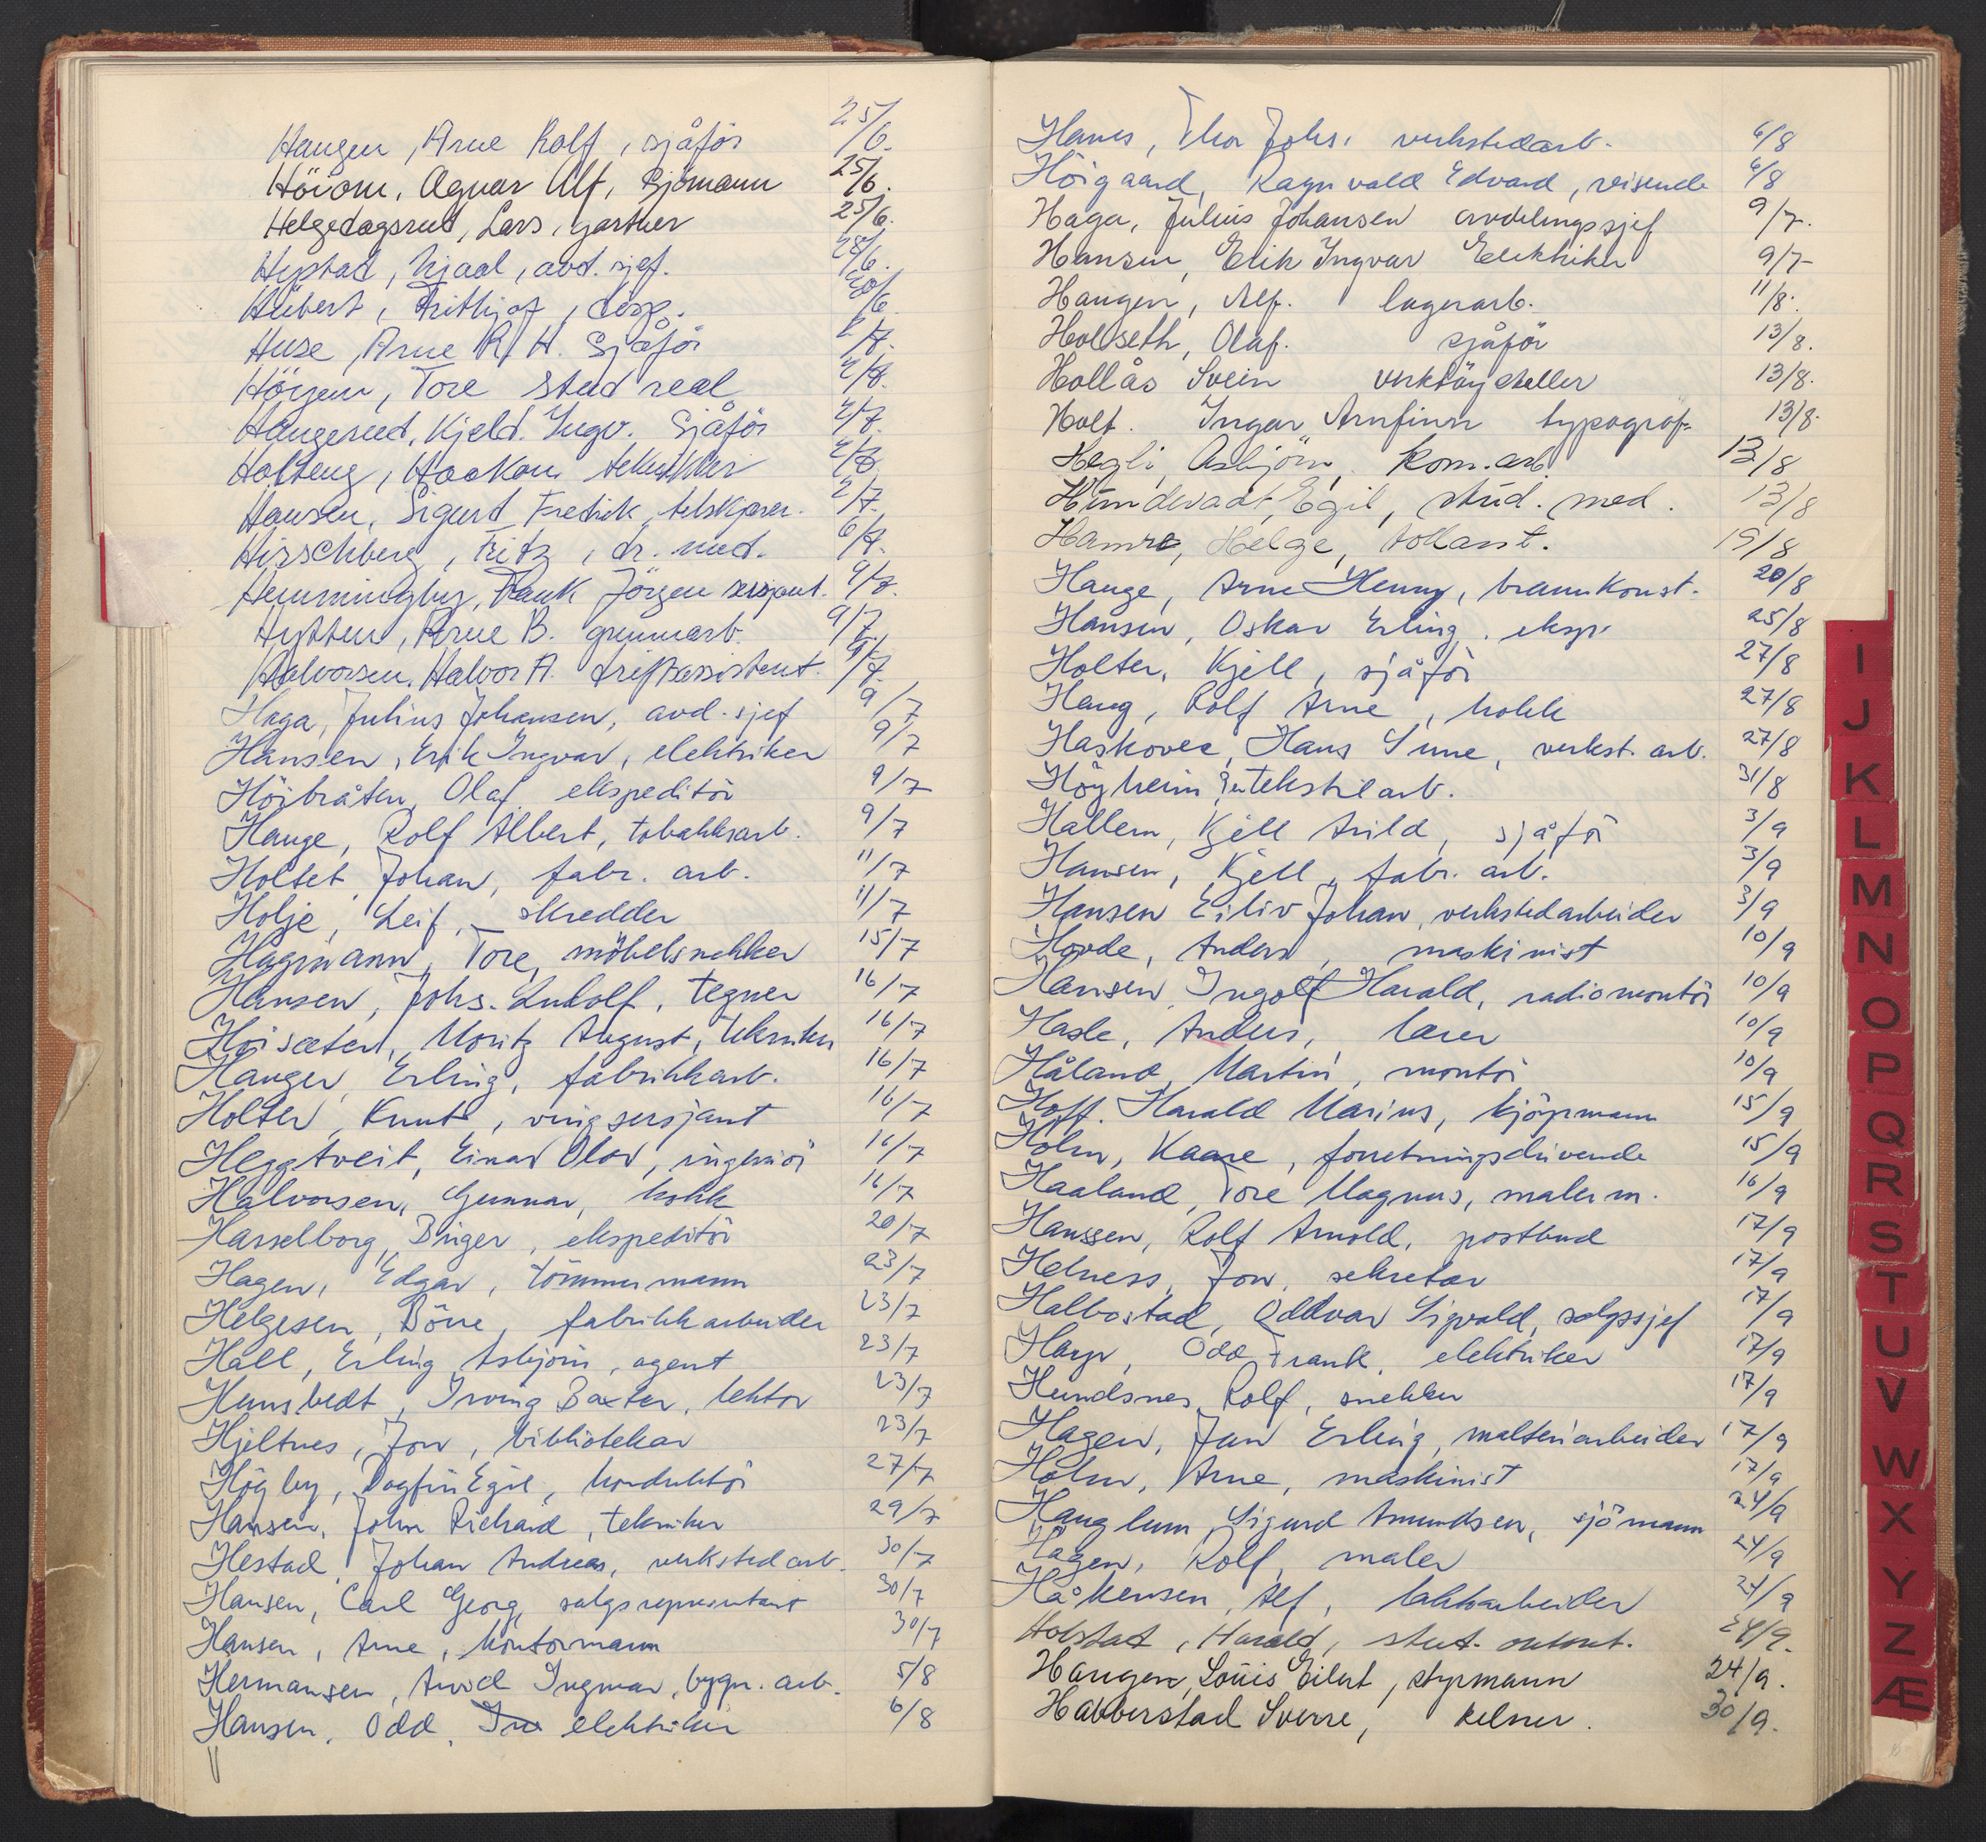 Haugen, Arne Rolf, sjåför 25/6.
Höiom, Agnar Alf, Sjömann 25/6.
Helgedagsrud, Lars, gartner 25/6.
Hystad, Njaal, avd. sjef. 28/6.
Hübert, Frithjof, disp. 30/6
Huse, Arne R. H. Sjåför 2/7.
Höyem, Tore stud real 2/7.
Haugerud, Kjeld. Ingv. Sjåför 2/7.
Holteng, Haakon tekstiker 2/7.
Hansen, Sigurd Fredrik, tilskjærer. 2/7.
Hirschberg, Fritz, dr. med. 6/7.
Hemmingby, Frank Jörgen sersjant. 9/7.
Hytten, Arne B. grunnarb. 9/7
Halvorsen, Halvor A. driftsassistent. 9/7.
Haga, Julius Johansen, avd. sjef 9/7
Hansen, Erik Ingvar, elektriker 9/7
Höibråten, Olaf ekspeditör 9/7
Hauge, Rolf Albert, tobakksarb. 9/7
Holtet Johan, fabr. arb. 11/7
Holje, Leif, skredder 11/7
Hagmann, Tore, möbelsnekker 15/7
Hansen, Johs. Ludolf, tegner 16/7
Höisæter, Moritz August, tekniker 16/7
Hauger, Erling, fabrikkarb. 16/7
Holter, Knut, vingsersjant 16/7
Heggtveit, Einar Olav, ingeniör 16/7
Halvorsen, Gunnar, kokk 16/7
Hasselborg, Birger, ekspeditör 20/7
Hagen, Edgar, tömmermann 23/7
Helgesen, Börre, fabrikkarbeider 23/7
Hall, Erling Asbjörn, agent 23/7
Hunsbedt, Irving Baxter, lektor 23/7
Hjeltnes, Jon, bibliotekar 23/7
Högby, Dagfin Egil, konduktör 27/7
Hansen, John Richard, tekniker 29/7
Hestad, Johan Andreas, verksted arb. 30/7
Hansen, Carl Georg, salgsrepresentant 30/7
Hansen, Arne, kontormann 30/7
Hermansen, Arvid Ingmar, bygn. arb. 5/8
Hansen, Odd, elektriker 6/8
Hanes, Thor Johs. verkstedarb. 6/8
Höigaard, Ragnvald Edvard, reisende 6/8
Haga, Julius Johansen avdelingssjef 9/7.
Hansen, Erik Ingvar Elektriker 9/7
Haugen, Alf. lagerarb. 11/8.
Holseth, Olaf. sjåför 13/8.
Hollås Svein verktöysteller 13/8.
Holt. Ingar Arnfinn typograf 13/8.
Hegli, Asbjörn, kom. arb 13/8
Hundevadt, Egil, stud. med. 13/8
Hamre, Helge, tollass't. 19/8
Hauge, Arne Henny, brannkonst. 20/8
Hansen, Oskar Erling. eksp. 25/8
Holter, Kjell, sjåför 27/8
Haug, Rolf Arne, kokk 27/8
Haskovec, Hans Sune, verkst. arb. 27/8
Höyheim, tekstilarb. 31/8
Hallem, Kjell Arild, sjåför 3/9
Hansen, Kjell, fabr. arb. 3/9
Hansen Eiliv Johan, verkstedarbeider 3/9
Hovde, Anders, maskinist 10/9
Hansen Ingolf Harald, radiomontör 10/9
Hasle, Anders, lærer 10/9
Håland, Martin, montör 10/9
Hoff. Harald Marius, kjöpmann 15/9
Holm, Kaare, forretningsdrivende 15/9
Haaland, Tore Magnus, malerm. 16/9
Hanssen, Rolf Arnold, postbud 17/9
Helness, Jon, sekretær 17/9
Halbostad, Oddvar Sigvald, salgssjef 17/9
Harp, Odd Frank, elektriker 17/9
Hundsnes, Rolf, snekker 17/9
Hagen, Jan Erling, malteriarbeider 17/9
Holm, Arne, maskinist 17/9
Hauglum, Sigurd Amundsen, sjömann 24/9
Hagen, Rolf, maler 24/9
Håkensen, Alf, lakkarbeider 24/9
Holstad, Harald, stut. 28/9.
Haugen, Louis Eilert, styrmann 24/9.
Habberstad Sverre, kelner. 30/9.
I
J
K
L
M
N
O
P
Q
R
S
T
U
V
W
X
Y
Z
Æ